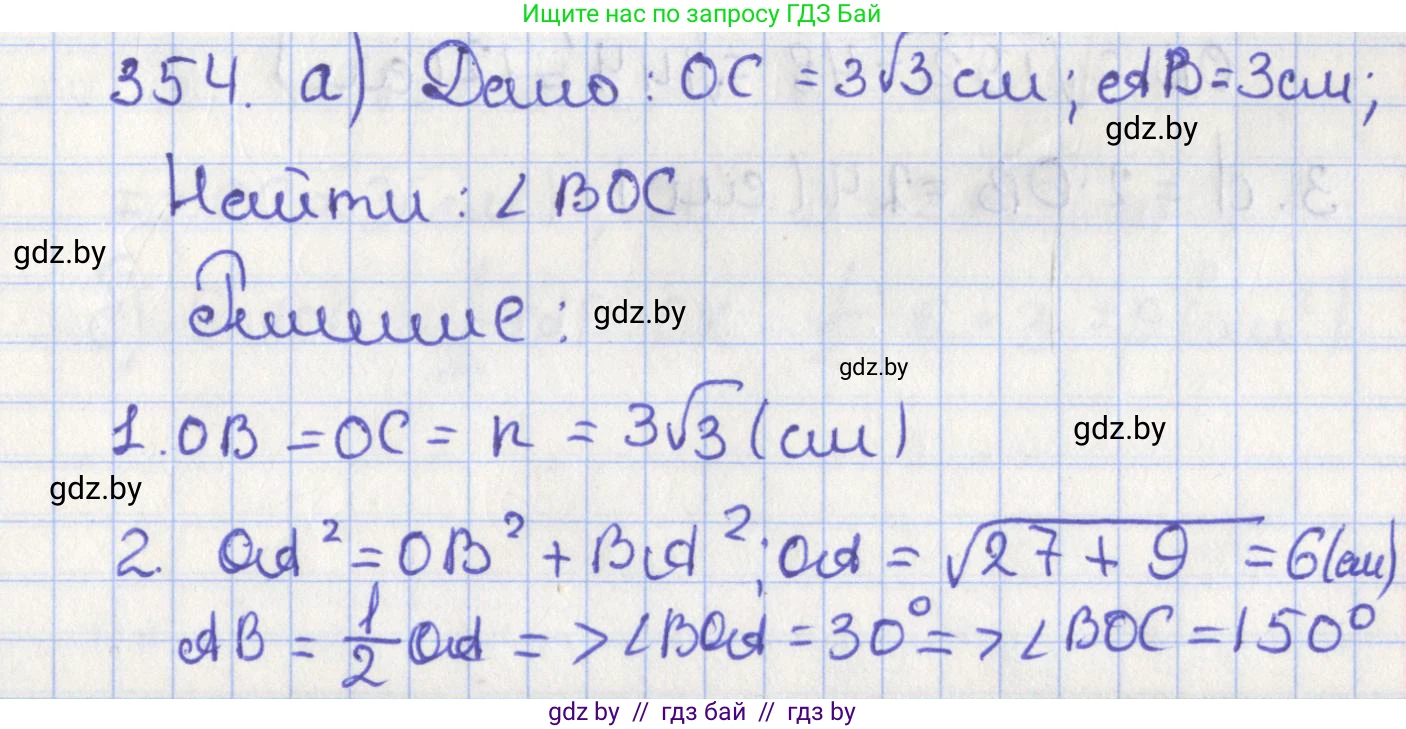 Ищите нас по запросу ГДЗ Бай
354. а) Дано: OC = 3√3 см; AB = 3см;
gdz.by
Найти: ∠ BOC
gdz.by
Решение:
gdz.by
gdz.by
1. OB = OC = R = 3√3 (см)
gdz.by
gdz.by
2. OA² = OB² + BA²; OA = √27 + 9 = 6(см)
AB = 1/2 OA => ∠BOA = 30° => ∠BOC = 150°
gdz by // гдз бай // гдз by